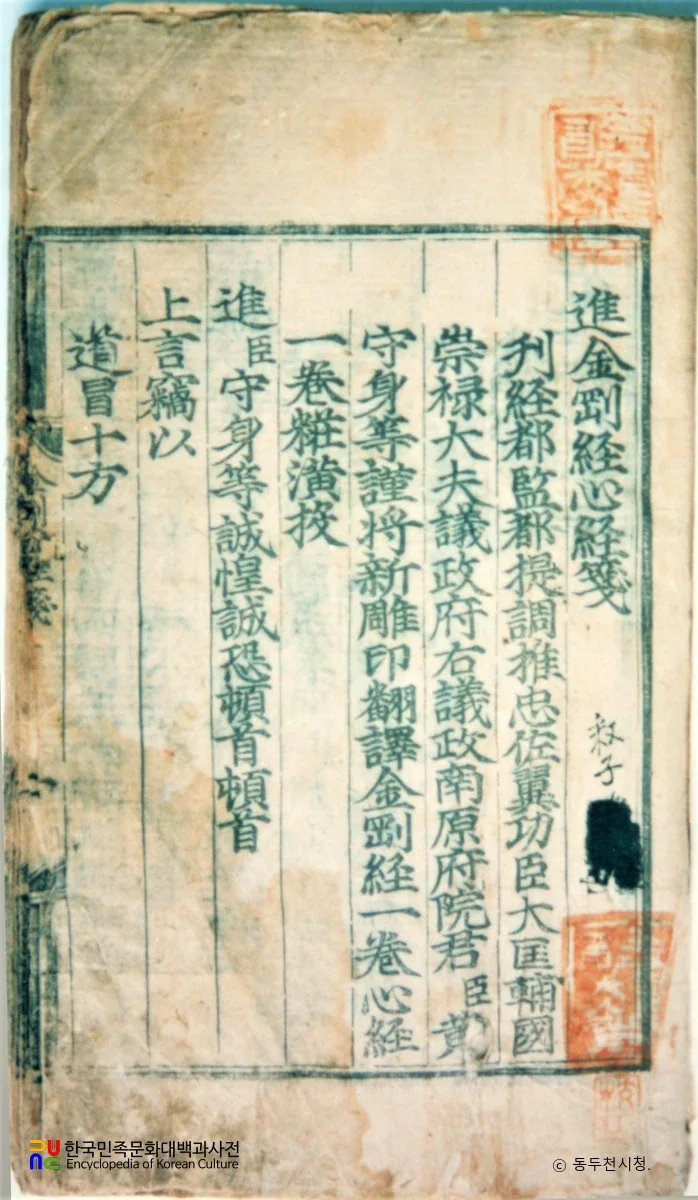 進金剛経心経箋
刊経都監都提調推忠佐翼功臣大匡輔國
崇禄大夫議政府右議政南原府院君臣黃
守身等謹将新雕印翻譯金剛経一卷心経
一卷粧潢投
進臣守身等誠惶誠恐頓首頓首
上言竊以
道冒十方
한국민족문화대백과사전
Encyclopedia of Korean Culture
ⓒ 동두천시청.